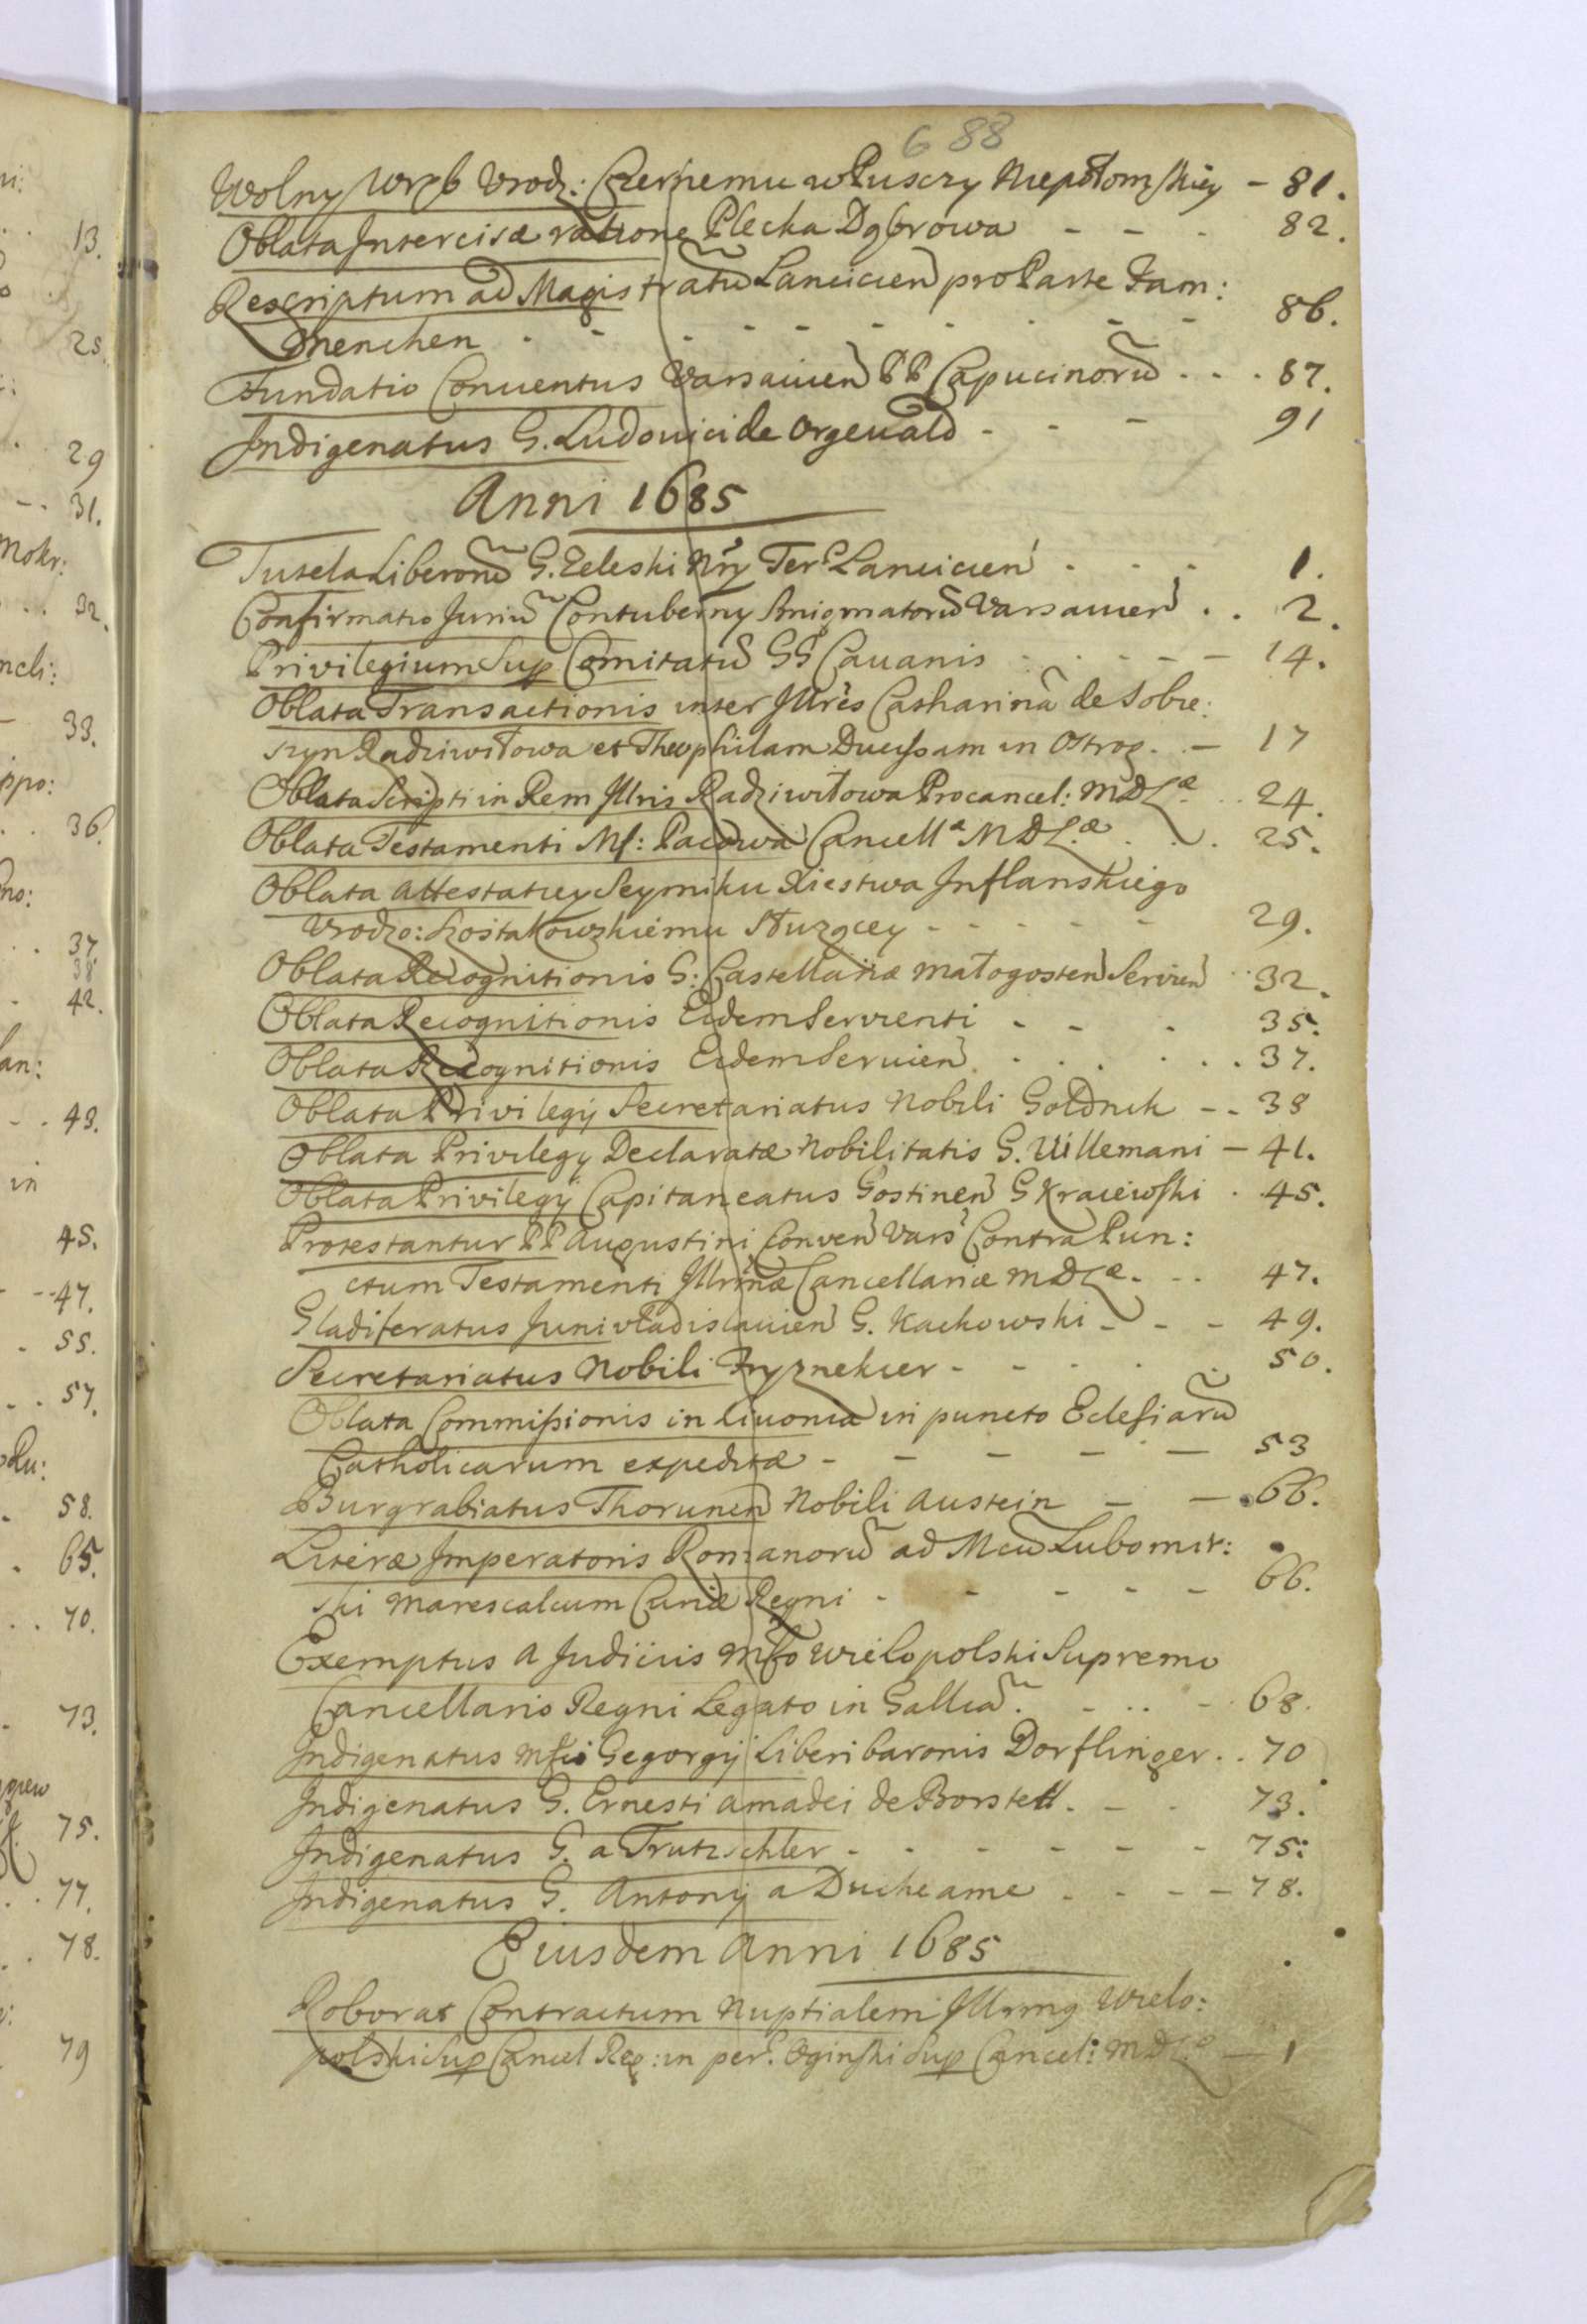 688
Wolny Wrąb Vrodz: Czernemu w Pusczy Niepołomskiey - 81.
Oblata Intercisæ ratione Plecka Dąbrowa - - - 82.
Rescriptum ad Magistratũ Lancicien pro Parte Fam:
Menchen - - - - - - - - - 86.
Fundatio Conventus Varsavien PP Capucinorũ . . . 87.
Indigenatus G. Ludovici de Orgewald - - - 91
Anni 1685
Tutela Liberorũ G. Zeleski Nry Ter. Lancicien . - - 1.
Confirmatio Juriũ Contuberny Smigmatorũ Varsavien . . 2.
Privilegium Sup Comitatũ GG Cavanis - - - - - 14.
Oblata Transactionis inter Illres Catharinã de Sobie:
szyn Radziwiłowa et Theophilam Ducissam in Ostrog. - 17
Oblata Scripti in Rem Illris Radziwiłowa Procancel: MDLæ . . 24.
Oblata Testamenti Mf: Pacowa Cancella MDLæ . . . 25.
Oblata Attestatiey Seymiku Xiestwa Inflanskiego
Vrodzo: Szostakowskiemu służącey - - - - - 29.
Oblata Recognitionis G: Castellanæ Małogosten Servien . . 32.
Oblata Recognitionis Eidem Servienti - - - 35.
Oblata Recognitionis Eidem Servien . . . . . . 37.
Oblata Privilegÿ Secretariatus Nobili Goldnik - - 38
Oblata Privilegÿ Declaratæ Nobilitatis G. Villemani - 41.
Oblata Privilegÿ Capitaneatus Gostinen G Kraiewski . . 45.
Protestantur PP Augustini Conven Vars Contra Pun:
ctum Testamenti Illrinæ Cancellariæ MDLæ. - . . 47.
Gladiferatus Junivladislavien G. Kachowski - - - 49.
Secretariatus Nobili Fryznekier - - - . . 50.
Oblata Commissionis in Livonia in puncto Eclesiarũ
Catholicarum expeditæ - - - - - 53
Burgrabiatus Thorunen Nobili Austein - - 66.
Literæ Imperatoris Romanorũ ad Mcũ Lubomir:
ski Marescalcum Curiæ Regni - - - - - 66.
Exemptus a Judicijs Mfco Wielopolski Supremo
Cancellario Regni Legato in Galliã. - . . - 68.
Indigenatus Mfci Gegorgÿ Liberi baronis Dorflinger . . 70
Indigenatus G. Ernesti Amadei de Borstell . - - 73.
Indigenatus G. a Trutzschler - - - - - - 75:
Indigenatus G. Antonÿ a Ducheame - - - - 78.
Eiusdem Anni 1685
Roborat Contractum Nuptialem Illrmg Wielo:
polski Sup Cancel Reg: in per. Oginski Sup Cancel: MDLæ - 1